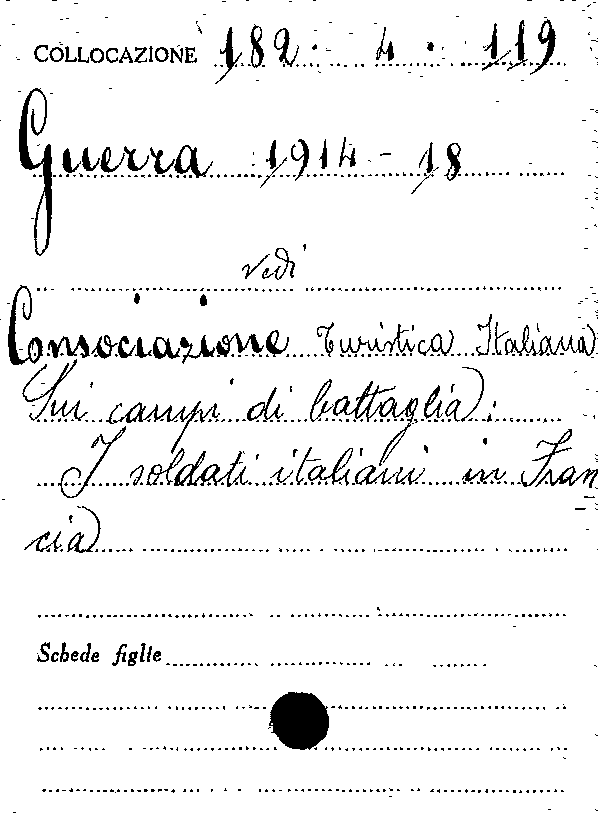 COLLOCAZIONE 182. 4. 119
Guerra 1914-18
vedi
Consociazione Turistica Italiana
Sui campi di battaglia:
I soldati italiani in Fran
cia
Schede figlie